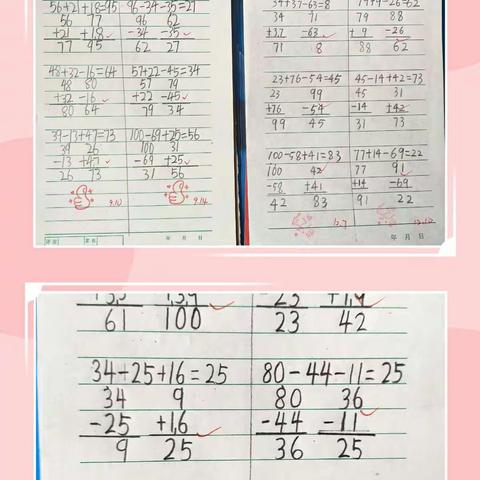 56+21+18=95 96-34-35=27
56 77 96 62
+21 +18 -34 -35
77 95 62 27
48+32-16=64 57+22-45=34
48 80 57 79
+32 -16 +22 -45
80 64 79 34
39-13+47=73 100-69+25=56
39 26 100 31
-13 +47 -69 +25
26 73 31 56
9.10 9.14
年 月 日
34+37-63=8 79+9-26=62
34 71 79 88
+37 -63 + 9 -26
71 8 88 62
23+76-54=45 45-14+42=73
23 99 45 31
+76 -54 -14 +42
99 45 31 73
100-58+41=83 77+14-69=22
100 42 77 91
-58 +41 +14 -69
42 83 91 22
12.7
年 月 日
61 100 23 42
34-25+16=25 80-44-11=25
34 9 80 36
-25 +16 -44 -11
9 25 36 25